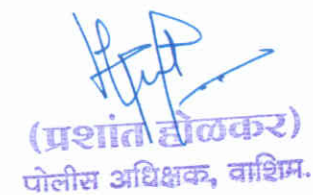 (प्रशांत होळकर)
पोलीस अधिक्षक, वाशिम.